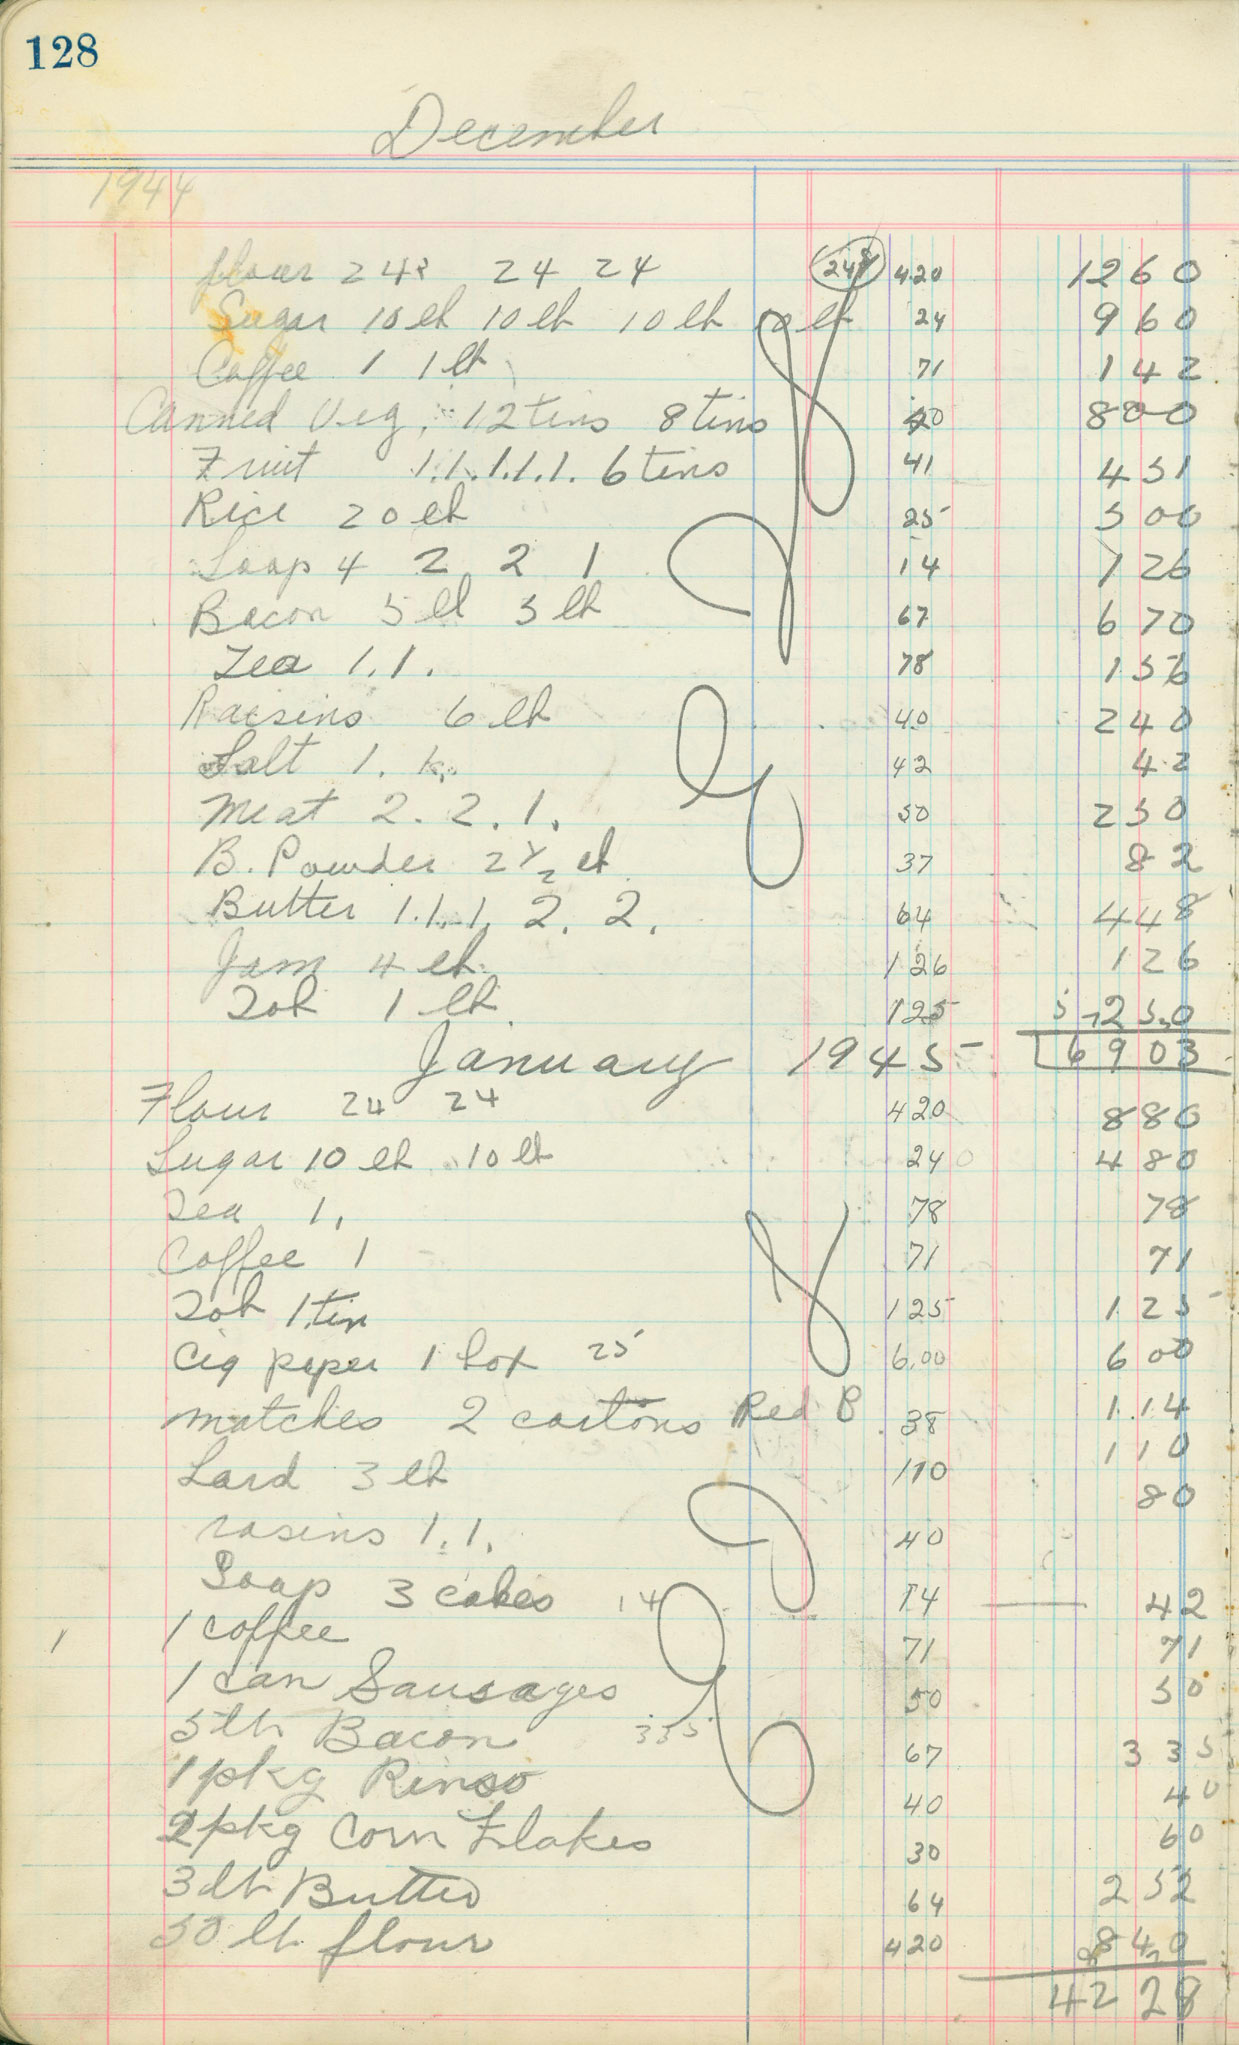 128
December
1944
flour 24 24 24 248 420 1260
Sugar 10 lb 10 lb 10 lb 10 lb 24 960
Coffee 1 1 lb 71 142
Canned Veg. 12 tins 8 tins 40 800
Fruit 1.1.1.1.1. 6 tins 41 451
Rice 20 lb 25 500
Soap 4 2 2 1 14 126
Bacon 5 lb 5 lb 67 670
Tea 1.1. 78 156
Raisins 6 lb 40 240
Salt 1. 42 42
Meat 2. 2. 1. 50 250
B. Powder 2 1/2 lb 37 82
Butter 1.1.1. 2. 2. 64 448
Jam 4 lb 126 126
Tob 1 lb 125 250
6903
January 1945
Flour 24 24 420 880
Sugar 10 lb 10 lb 24 480
Tea 1. 78 78
Coffee 1 71 71
Tob 1 tin 125 125
Cig paper 1 box 25 6.00 600
matches 2 cartons Red B 38 1.14
Lard 3 lb 110 110
rasins 1.1. 40 80
Soap 3 cakes 14 14 42
1 coffee 71 71
1 can Sausages 50 50
5 lb Bacon 335 67 335
1 pkg Rinso 40 40
2 pkg Corn Flakes 30 60
3 lb Butter 64 252
50 lb flour 420 840
4228